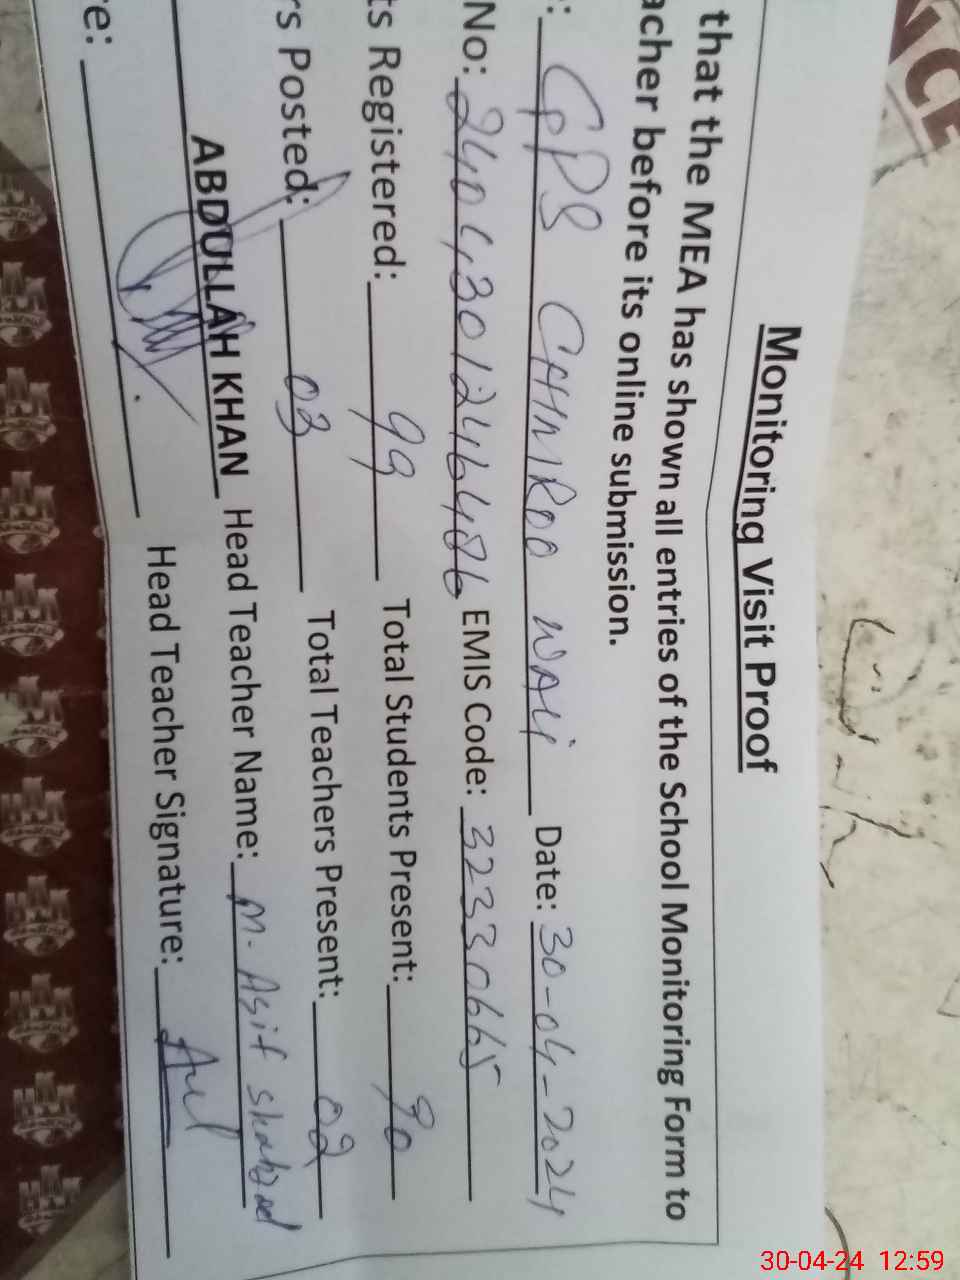 NCE
Monitoring Visit Proof
that the MEA has shown all entries of the School Monitoring Form to
acher before its online submission.
e: GPS CHHIROO WALI Date: 30-04-2024
No: EMIS Code: 32330665
ts Registered: 99 Total Students Present: 90
rs Posted: 03 Total Teachers Present: 02
ABDULLAH KHAN Head Teacher Name: M. Asif Shahzad
re: Head Teacher Signature:
30-04-24 12:59